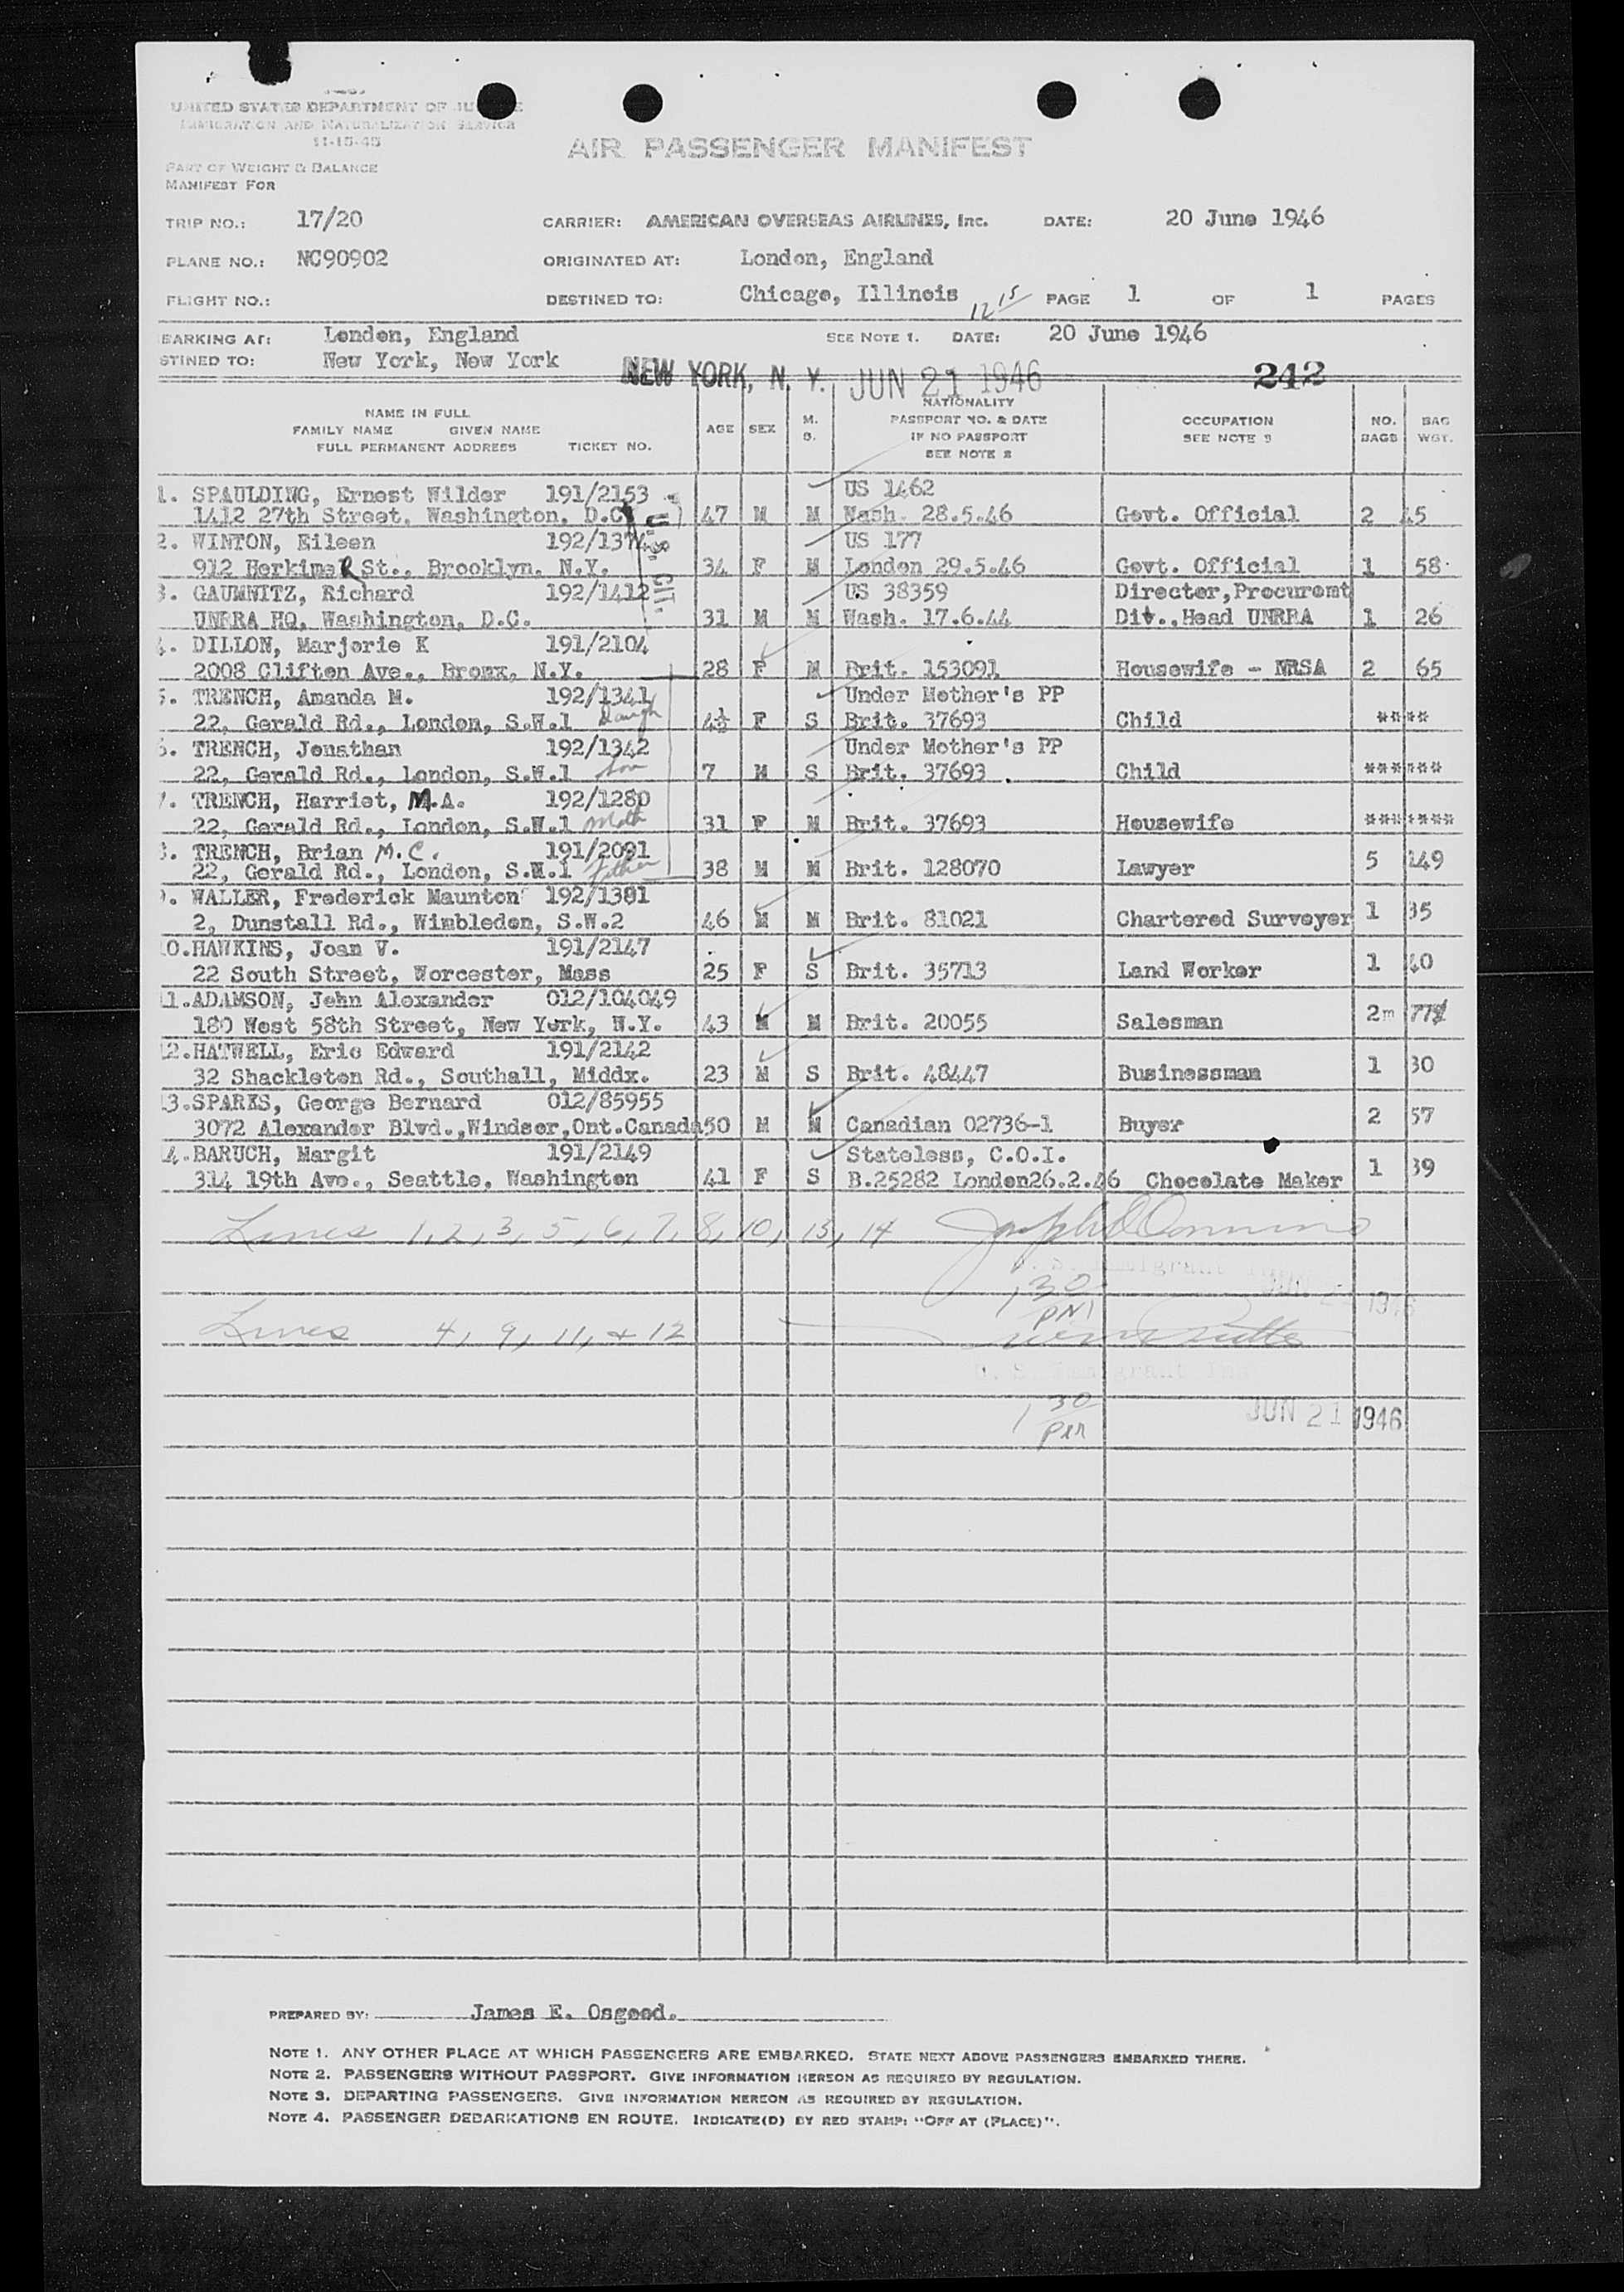 UNITED STATES DEPARTMENT OF JUSTICE
IMMIGRATION AND NATURALIZATION SERVICE
11-15-45
AIR PASSENGER MANIFEST
PART OF WEIGHT & BALANCE
MANIFEST FOR
TRIP NO.: 17/20 CARRIER: AMERICAN OVERSEAS AIRLINES, Inc. DATE: 20 June 1946
PLANE NO.: NC90902 ORIGINATED AT: London, England
FLIGHT NO.: DESTINED TO: Chicago, Illinois 12 15 PAGE 1 OF 1 PAGES
BARKING AT: London, England SEE NOTE 1. DATE: 20 June 1946
STINED TO: New York, New York
NEW YORK, N. Y. JUN 21 1946 242
NAME IN FULL
FAMILY NAME GIVEN NAME
FULL PERMANENT ADDRESS TICKET NO.
AGE SEX M. S.
NATIONALITY
PASSPORT NO. & DATE
IF NO PASSPORT
SEE NOTE 2
OCCUPATION
SEE NOTE 3
NO. BAGS
BAG WGT.
1. SPAULDING, Ernest Wilder 191/2153 US 1462
1412 27th Street, Washington, D.C. 47 M M Wash. 28.5.46 Govt. Official 2 45
U.S. CIT.
2. WINTON, Eileen 192/1374 US 177
912 HerkimeR St., Brooklyn, N.Y. 34 F M London 29.5.46 Govt. Official 1 58
3. GAUMNITZ, Richard 192/1412 US 38359 Director, Procuremt
UNRRA HQ, Washington, D.C. 31 M M Wash. 17.6.44 Div., Head UNRRA 1 26
4. DILLON, Marjorie K 191/2104
2008 Clifton Ave., Bronx, N.Y. 28 F M Brit. 153091 Housewife - NRSA 2 65
5. TRENCH, Amanda M. 192/1341 Under Mother's PP
22, Gerald Rd., London, S.W.1 Daugh 4½ F S Brit. 37693 Child ****
6. TRENCH, Jonathan 192/1342 Under Mother's PP
22, Gerald Rd., London, S.W.1 Son 7 M S Brit. 37693 Child ******
7. TRENCH, Harriet, M.A. 192/1280
22, Gerald Rd., London, S.W.1 Moth 31 F M Brit. 37693 Housewife *******
8. TRENCH, Brian M.C. 191/2091
22, Gerald Rd., London, S.W.1 Father 38 M M Brit. 128070 Lawyer 5 149
9. WALLER, Frederick Maunton 192/1381
2, Dunstall Rd., Wimbledon, S.W.2 46 M M Brit. 81021 Chartered Surveyor 1 35
10. HAWKINS, Joan V. 191/2147
22 South Street, Worcester, Mass 25 F S Brit. 35713 Land Worker 1 40
11. ADAMSON, John Alexander 012/104049
180 West 58th Street, New York, N.Y. 43 M M Brit. 20055 Salesman 2
12. HATWELL, Eric Edward 191/2142
32 Shackleton Rd., Southall, Middx. 23 M S Brit. 48447 Businessman 1 30
13. SPARKS, George Bernard 012/85955
3072 Alexander Blvd., Windsor, Ont. Canada 50 M M Canadian 02736-1 Buyer 2 57
14. BARUCH, Margit 191/2149 Stateless, C.O.I.
314 19th Ave., Seattle, Washington 41 F S B.25282 London26.2.46 Chocolate Maker 1 39
Lines 1, 2, 3, 5, 6, 7, 8, 10, 13, 14
U. S. Immigrant Ins
JUN 21 1946
1 30 PM
Lines 4, 9, 11, + 12
U. S. Immigrant Ins
1 30 PM
JUN 21 1946
PREPARED BY: James E. Osgood.
NOTE 1. ANY OTHER PLACE AT WHICH PASSENGERS ARE EMBARKED. STATE NEXT ABOVE PASSENGERS EMBARKED THERE.
NOTE 2. PASSENGERS WITHOUT PASSPORT. GIVE INFORMATION HEREON AS REQUIRED BY REGULATION.
NOTE 3. DEPARTING PASSENGERS. GIVE INFORMATION HEREON AS REQUIRED BY REGULATION.
NOTE 4. PASSENGER DEBARKATIONS EN ROUTE. INDICATE(D) BY RED STAMP: "OFF AT (PLACE)".